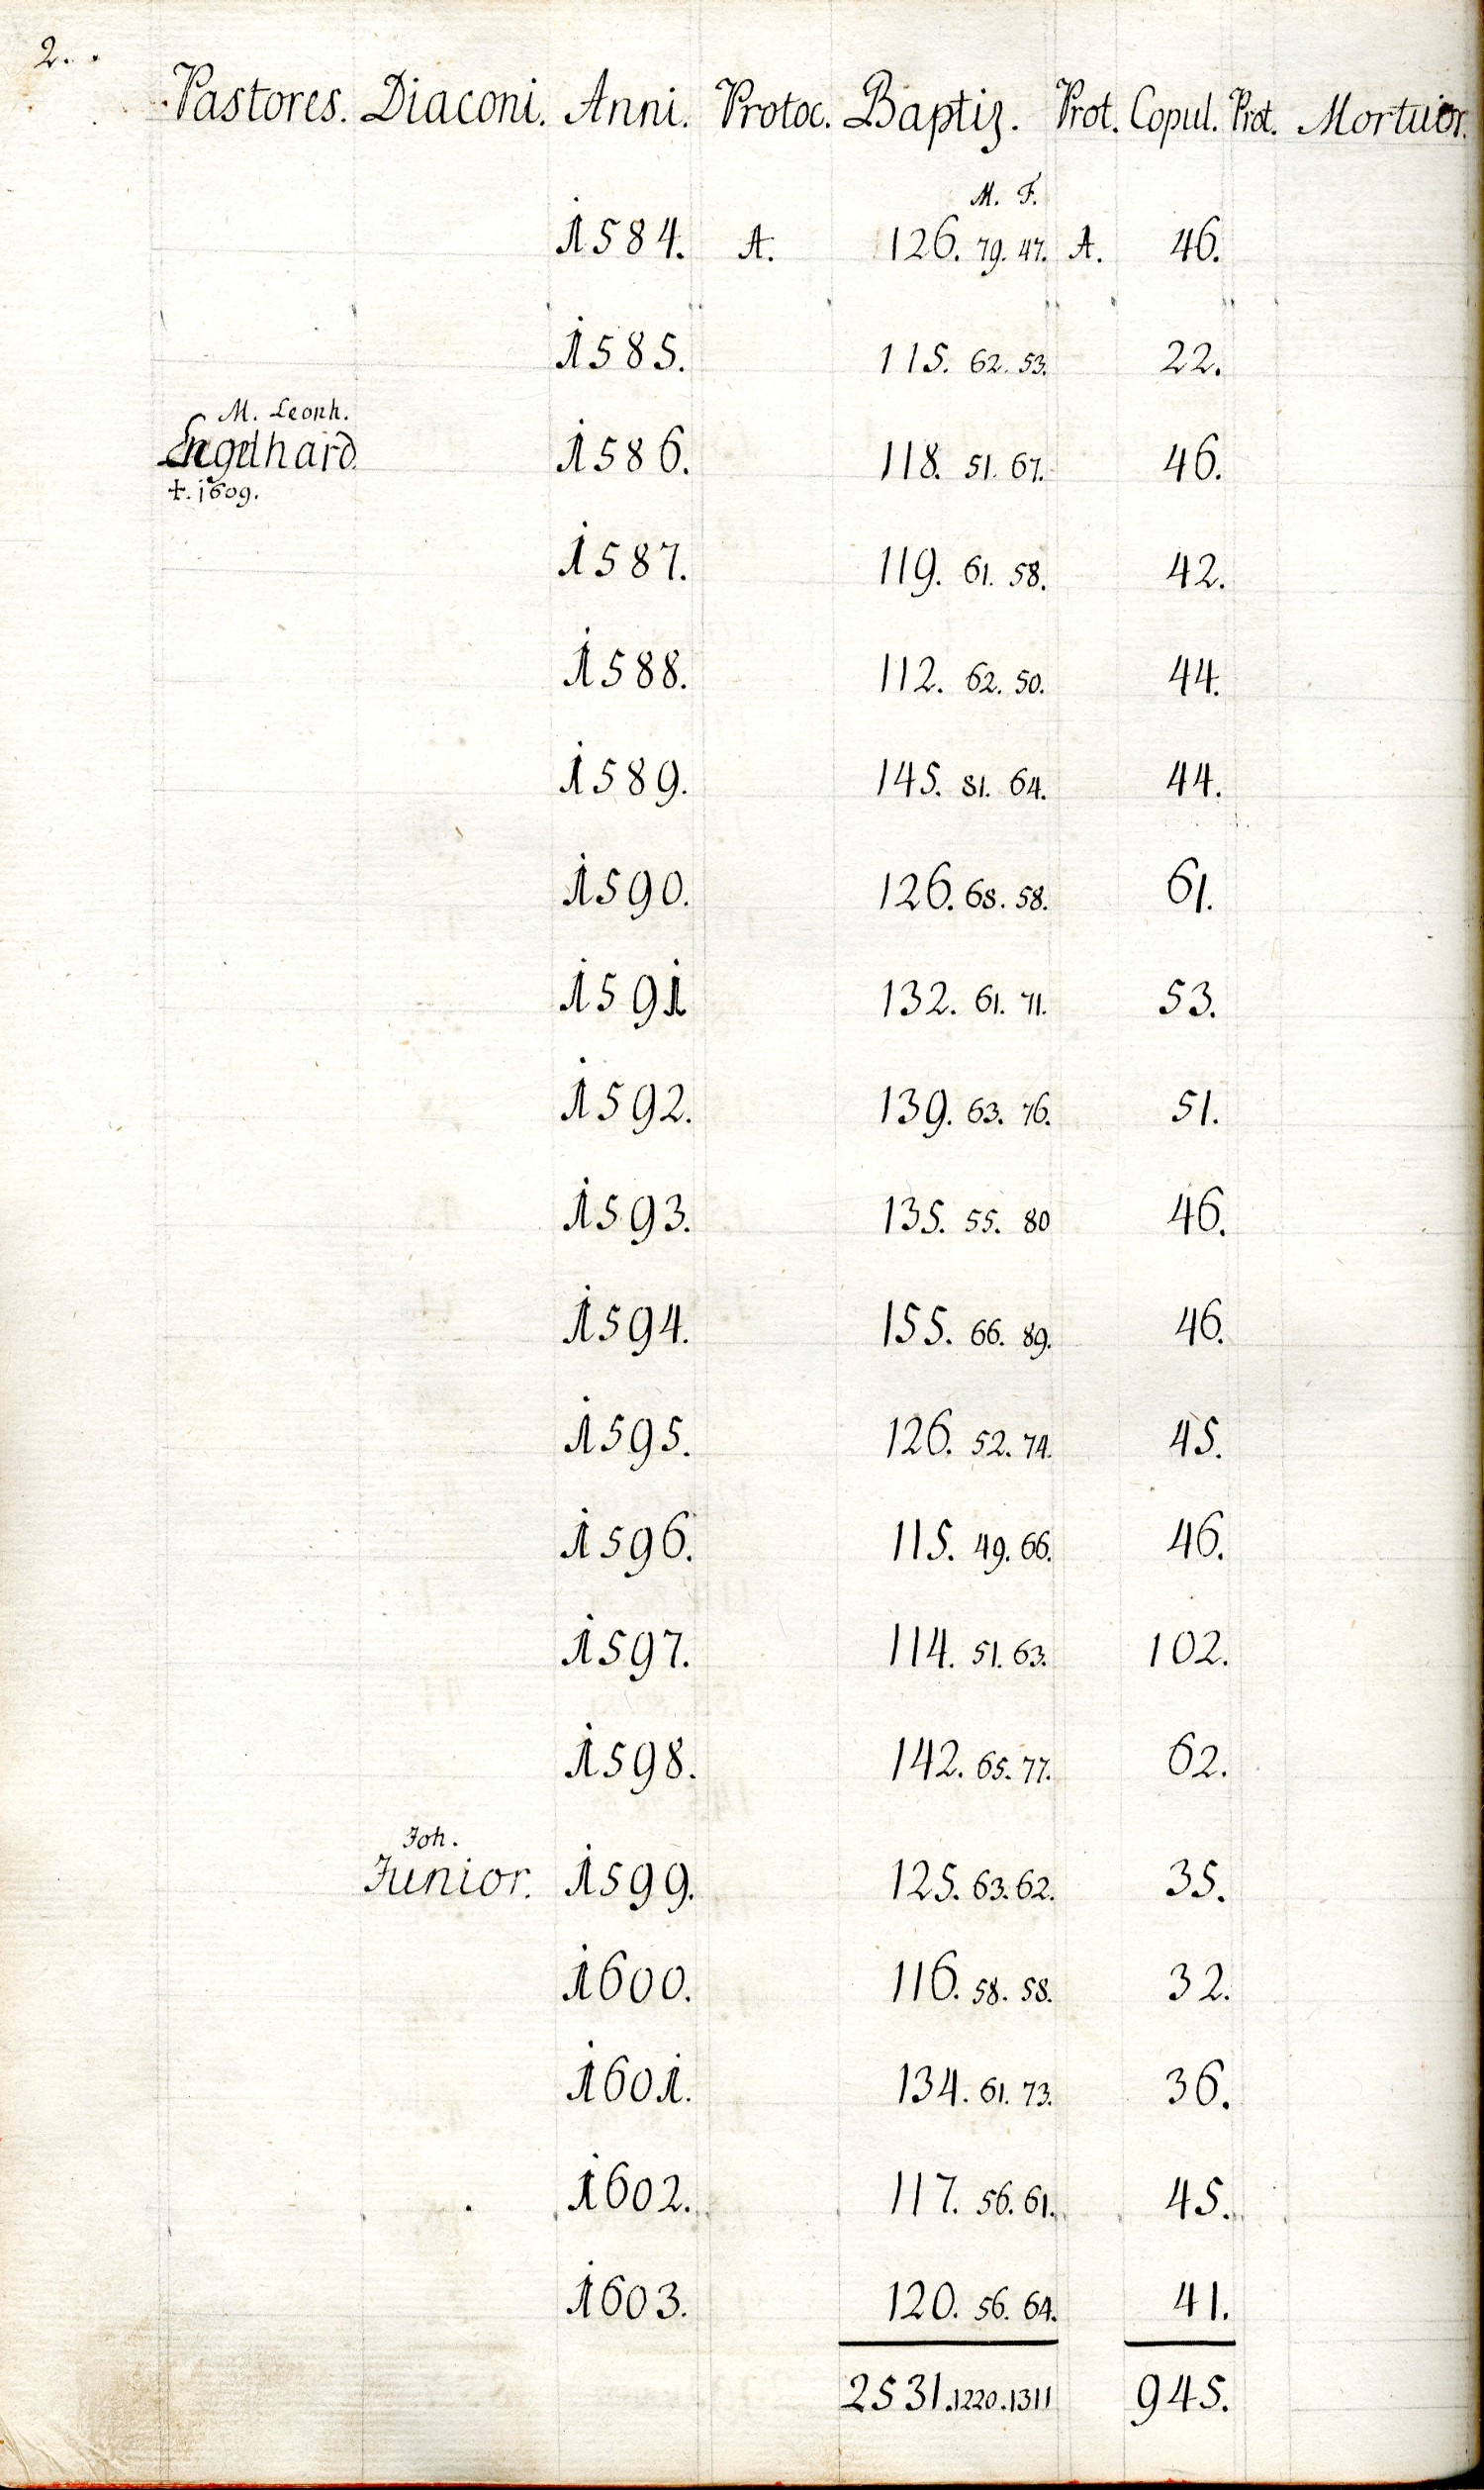 2.
Pastores. Diaconi. Anni. Protoc. Baptiz. Prot. Copul. Prot. Mortuor.
M. F.
1584. A. 126. 79. 47. A. 46.
1585. 115. 62. 53. 22.
M. Leonh.
Engelhard 1586. 118. 51. 67. 46.
†. 1609.
1587. 119. 61. 58. 42.
1588. 112. 62. 50. 44.
1589. 145. 81. 64. 44.
1590. 126. 68. 58. 61.
1591 132. 61. 71. 53.
1592. 139. 63. 76. 51.
1593. 135. 55. 80 46.
1594. 155. 66. 89. 46.
1595. 126. 52. 74. 45.
1596. 115. 49. 66. 46.
1597. 114. 51. 63. 102.
1598. 142. 65. 77. 62.
Joh.
Junior. 1599. 125. 63. 62. 35.
1600. 116. 58. 58. 32.
1601. 134. 61. 73. 36.
1602. 117. 56. 61. 45.
1603. 120. 56. 64. 41.
2531. 1220. 1311 945.